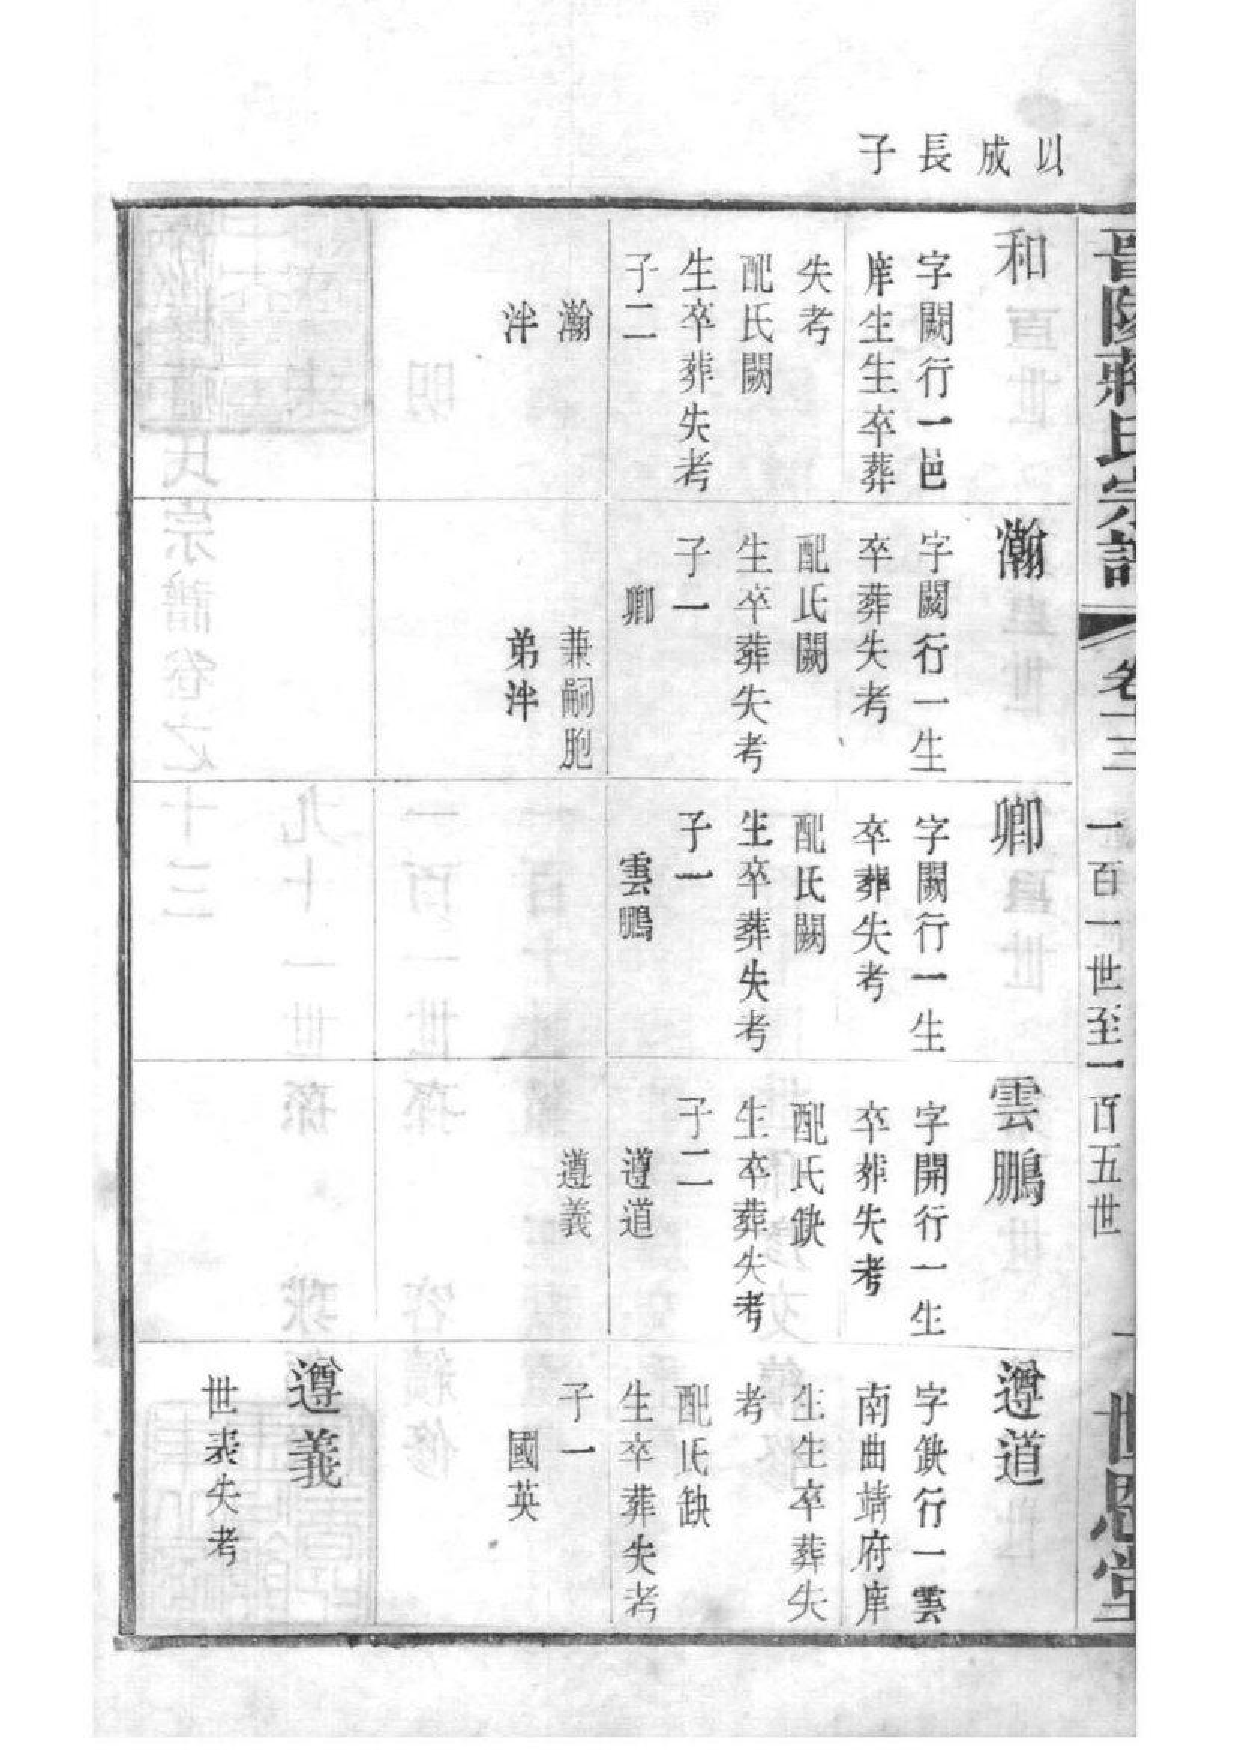 晋陵蔣氏宗譜
卷十三
一百一世至一百五世
一
世恩堂
以成長子
和
字闕行一邑
庠生生卒葬
失考
配氏闕
生卒葬失考
子二
瀚
泮
瀚
字闕行一生
卒葬失考
配氏闕
生卒葬失考
子一
卿
兼嗣胞
弟泮
卿
字闕行一生
卒葬失考
配氏闕
生卒葬失考
子一
雲鵬
雲鵬
字開行一生
卒葬失考
配氏缺
生卒葬失考
子二
遵道
遵義
遵道
字缺行一雲
南曲靖府庠
生生卒葬失
考
配氏缺
生卒葬失考
子一
國英
遵義
世表失考